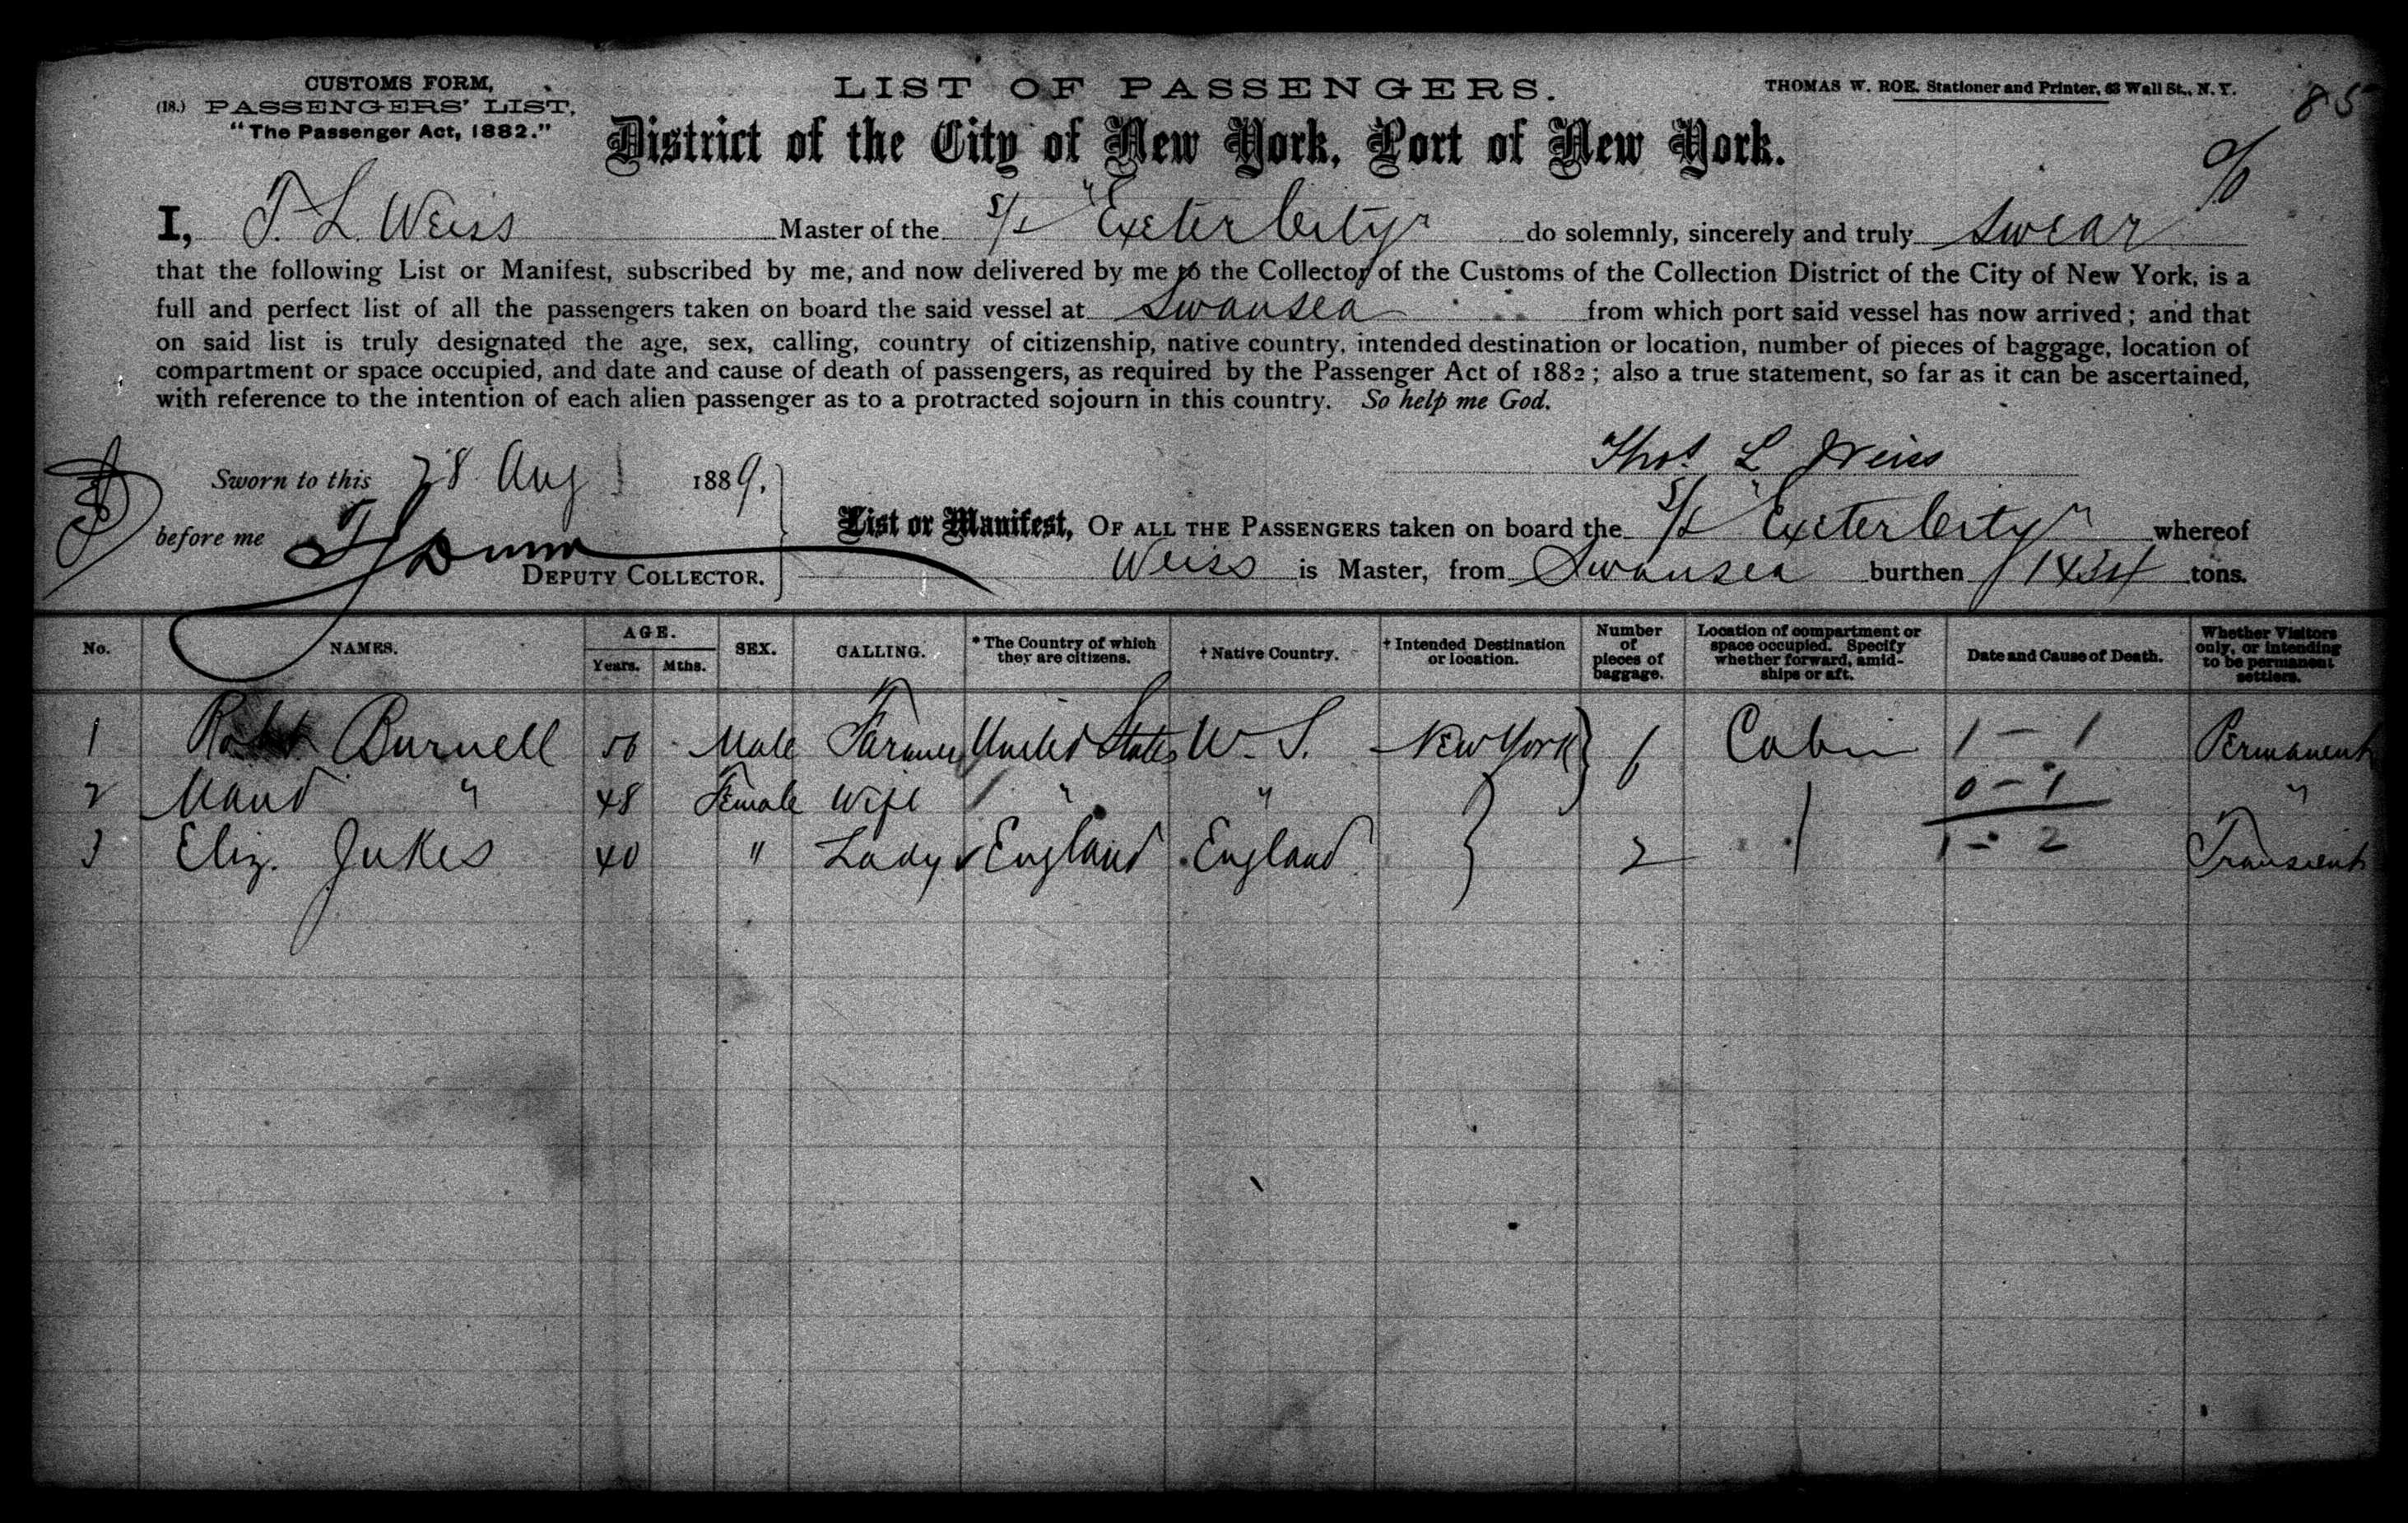 CUSTOMS FORM,
(18.) PASSENGERS' LIST,
"The Passenger Act, 1882."
LIST OF PASSENGERS.
THOMAS W. ROE, Stationer and Printer, 63 Wall St., N. Y.
85
District of the City of New York, Port of New York.
I, T. L. Weiss Master of the S/S "Exeter City" do solemnly, sincerely and truly swear
that the following List or Manifest, subscribed by me, and now delivered by me to the Collector of the Customs of the Collection District of the City of New York, is a
full and perfect list of all the passengers taken on board the said vessel at Swansea from which port said vessel has now arrived; and that
on said list is truly designated the age, sex, calling, country of citizenship, native country, intended destination or location, number of pieces of baggage, location of
compartment or space occupied, and date and cause of death of passengers, as required by the Passenger Act of 1882; also a true statement, so far as it can be ascertained,
with reference to the intention of each alien passenger as to a protracted sojourn in this country. So help me God.
Thos. L Weiss
Sworn to this 28 Aug 1889.
before me
DEPUTY COLLECTOR.
List or Manifest, OF ALL THE PASSENGERS taken on board the S/S "Exeter City" whereof
Weiss is Master, from Swansea burthen 1434 tons.
No. NAMES. AGE. Years. Mths. SEX. CALLING. * The Country of which they are citizens. † Native Country. † Intended Destination or location. Number of pieces of baggage. Location of compartment or space occupied. Specify whether forward, amidships or aft. Date and Cause of Death. Whether Visitors only, or intending to be permanent settlers.
1 Robt Burnell 56 Male Farmer United States U. S. New York 6 Cabin 1 - 1 Permanent
2 Maud " 48 Female Wife " " 0 - 1 "
3 Eliz. Jukes 40 " Lady England England 2 1 - 2 Transient